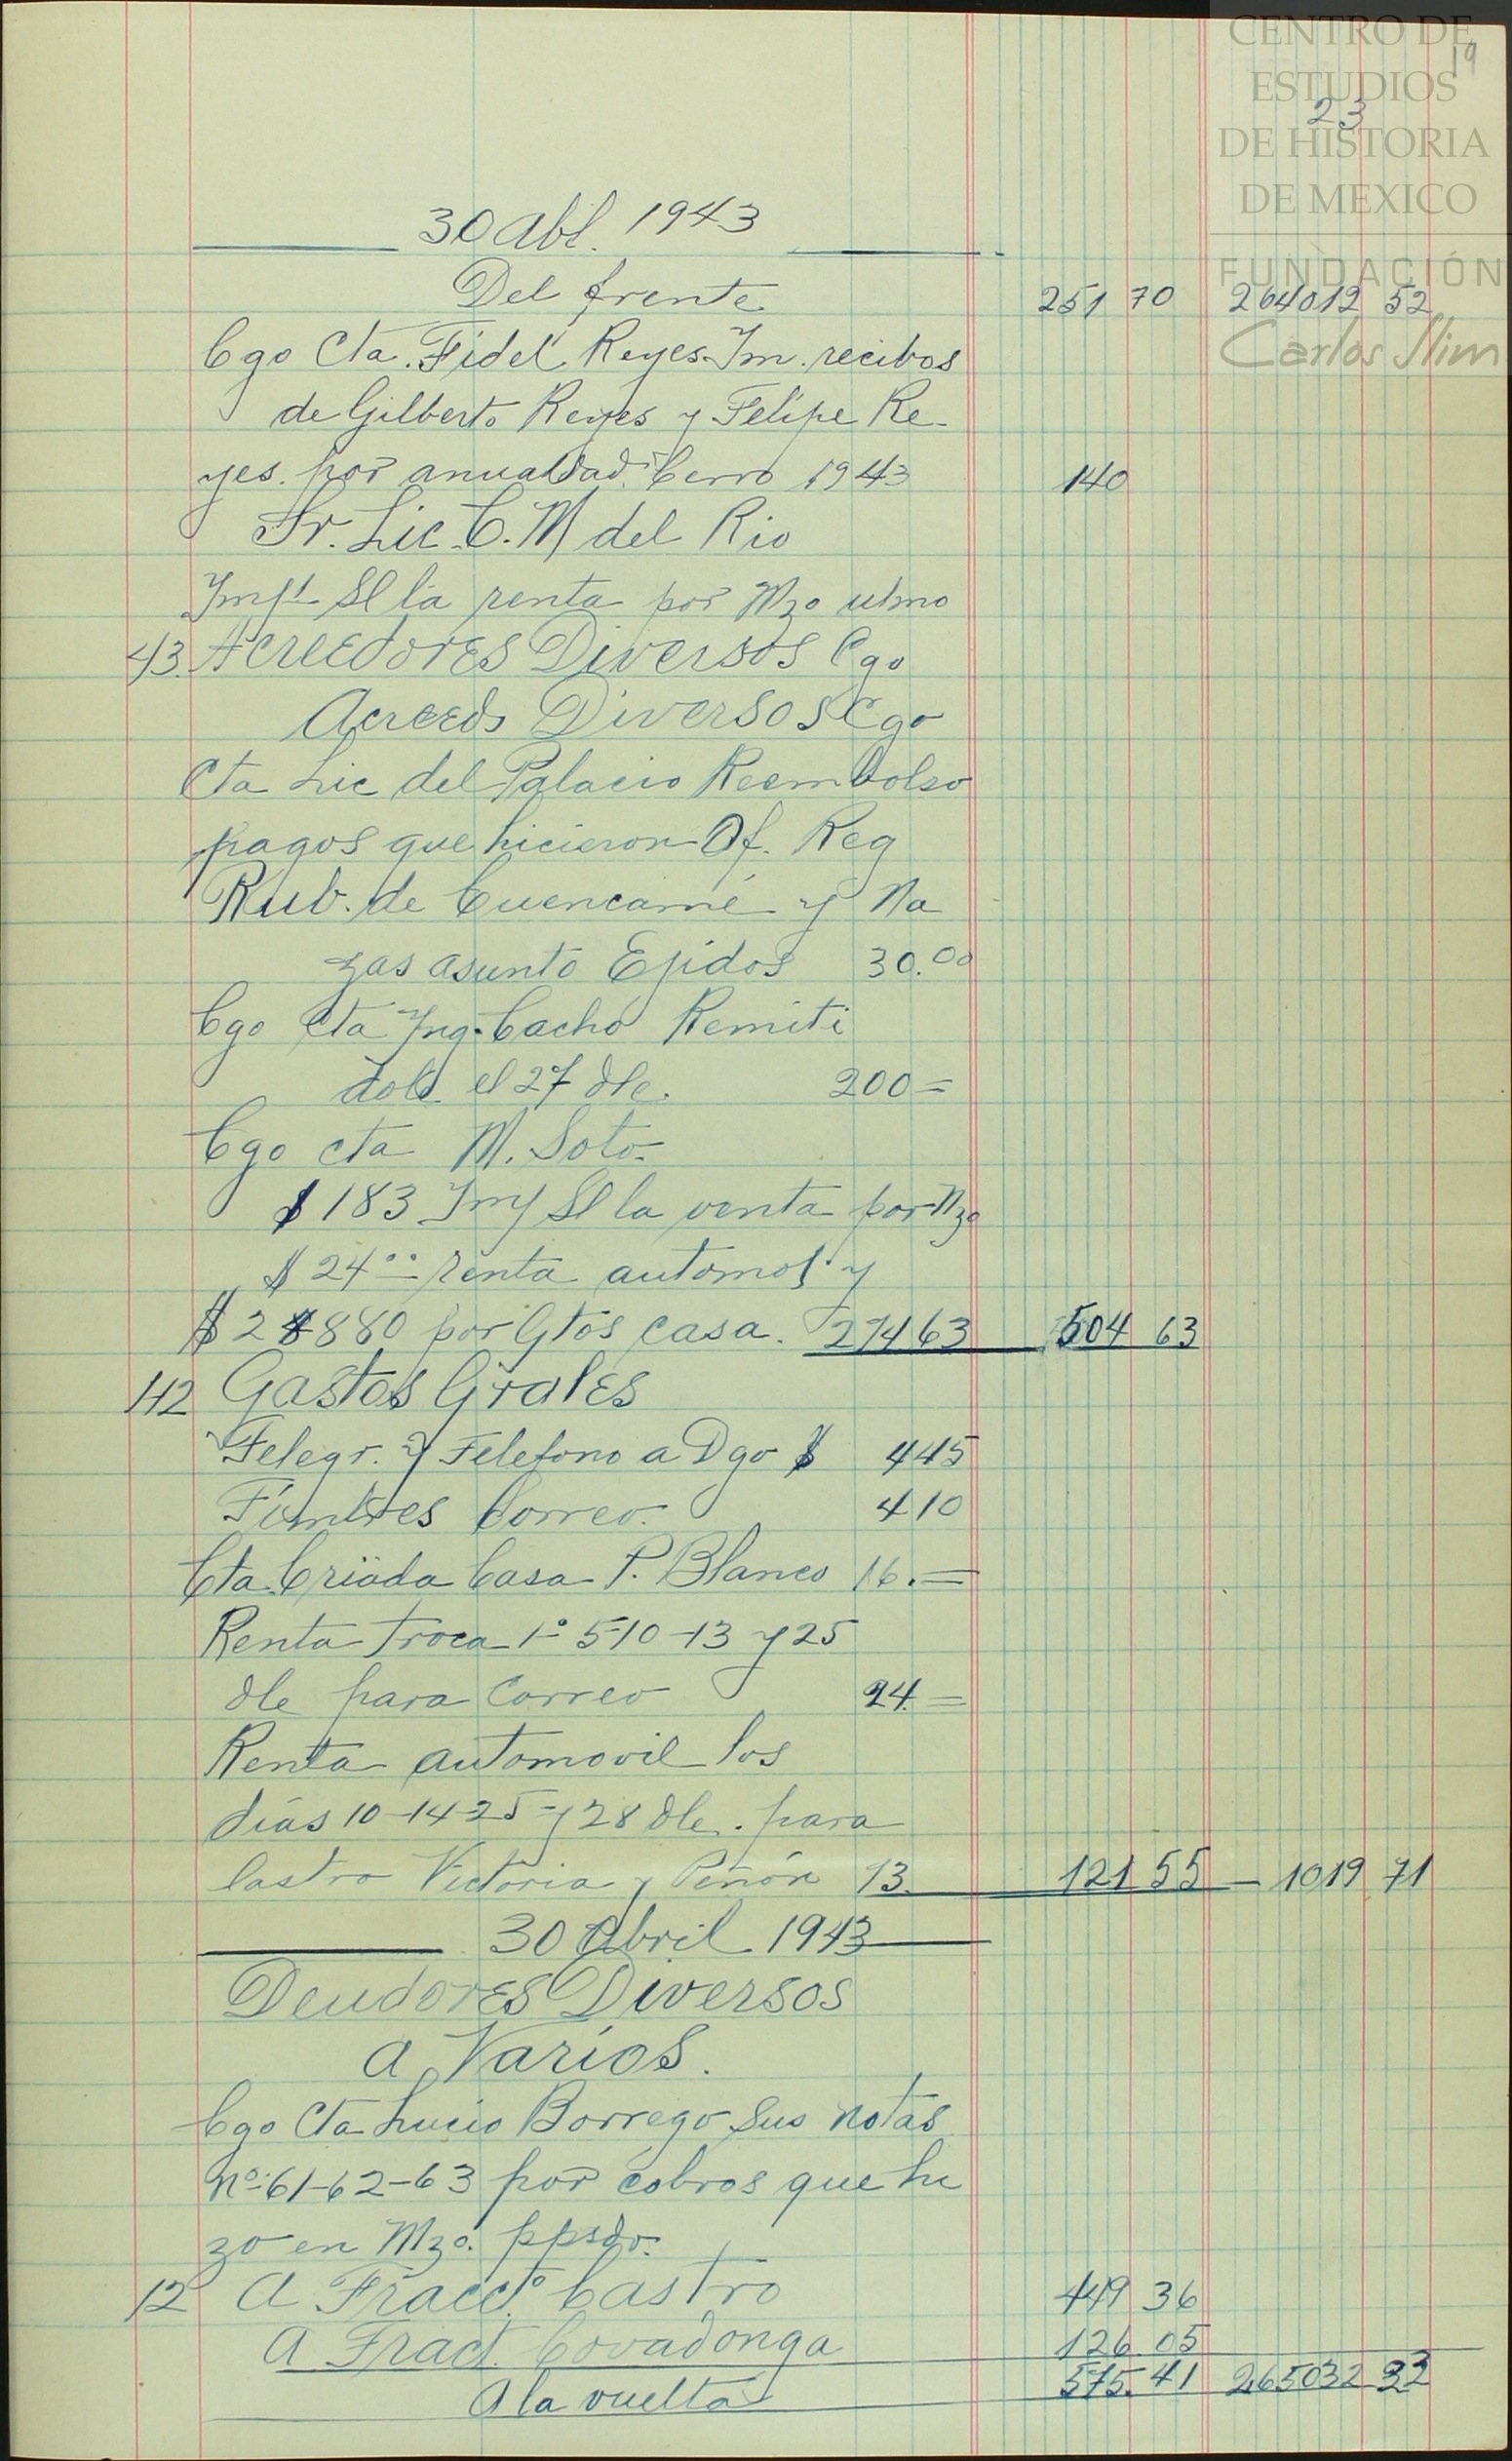 CENTRO DE
ESTUDIOS
DE HISTORIA
DE MEXICO
FUNDACIÓN
Carlos Slim
19
23
30 Abl. 1943
Del frente 251 70 264012 52
Cgo Cta. Fidel Reyes Im. recibos
de Gilberto Reyes y Felipe Re-
yes. por anualdad. Cerro 1943 140
Sr. Lic. C. M del Rio
Impt Sl la renta por Mzo utmo
43. Acreedores Diversos Cgo
Acreeds Diversos Cgo
Cta Lic del Palacio Reembolso
pagos que hicieron Of. Reg
Rub. de Cuencamé y Na
zas asunto Ejidos 30.00
Cgo Cta Ing. Cacho Remiti
dole el 27 dle. 200=
Cgo cta M. Soto.
$183 Imp Sl la venta por Mzo
$24.. renta automol y
$2 880 por Gtos casa. 274 63 504 63
42 Gastos Grales
Telegr. y Telefono a Dgo $ 445
Timbres Correo. 410
Cta. Criada Casa P. Blanco 16.=
Renta troca 1º 5-10-13 y 25
dle para Correo 24.=
Renta automovil los
días 10-14-25 y 28 dle. para
Castro Victoria y Peñón 13. 121 55 1019 71
30 Abril 1943
Deudores Diversos
a Varios.
Cgo Cta Lucio Borrego sus notas
nº 61-62-63 por cobros que hi
zo en Mzo. ppsdo.
12 A Fracct. Castro 449 36
A Fract. Covadonga 126.05
A la vuelta 575.41 265032 23